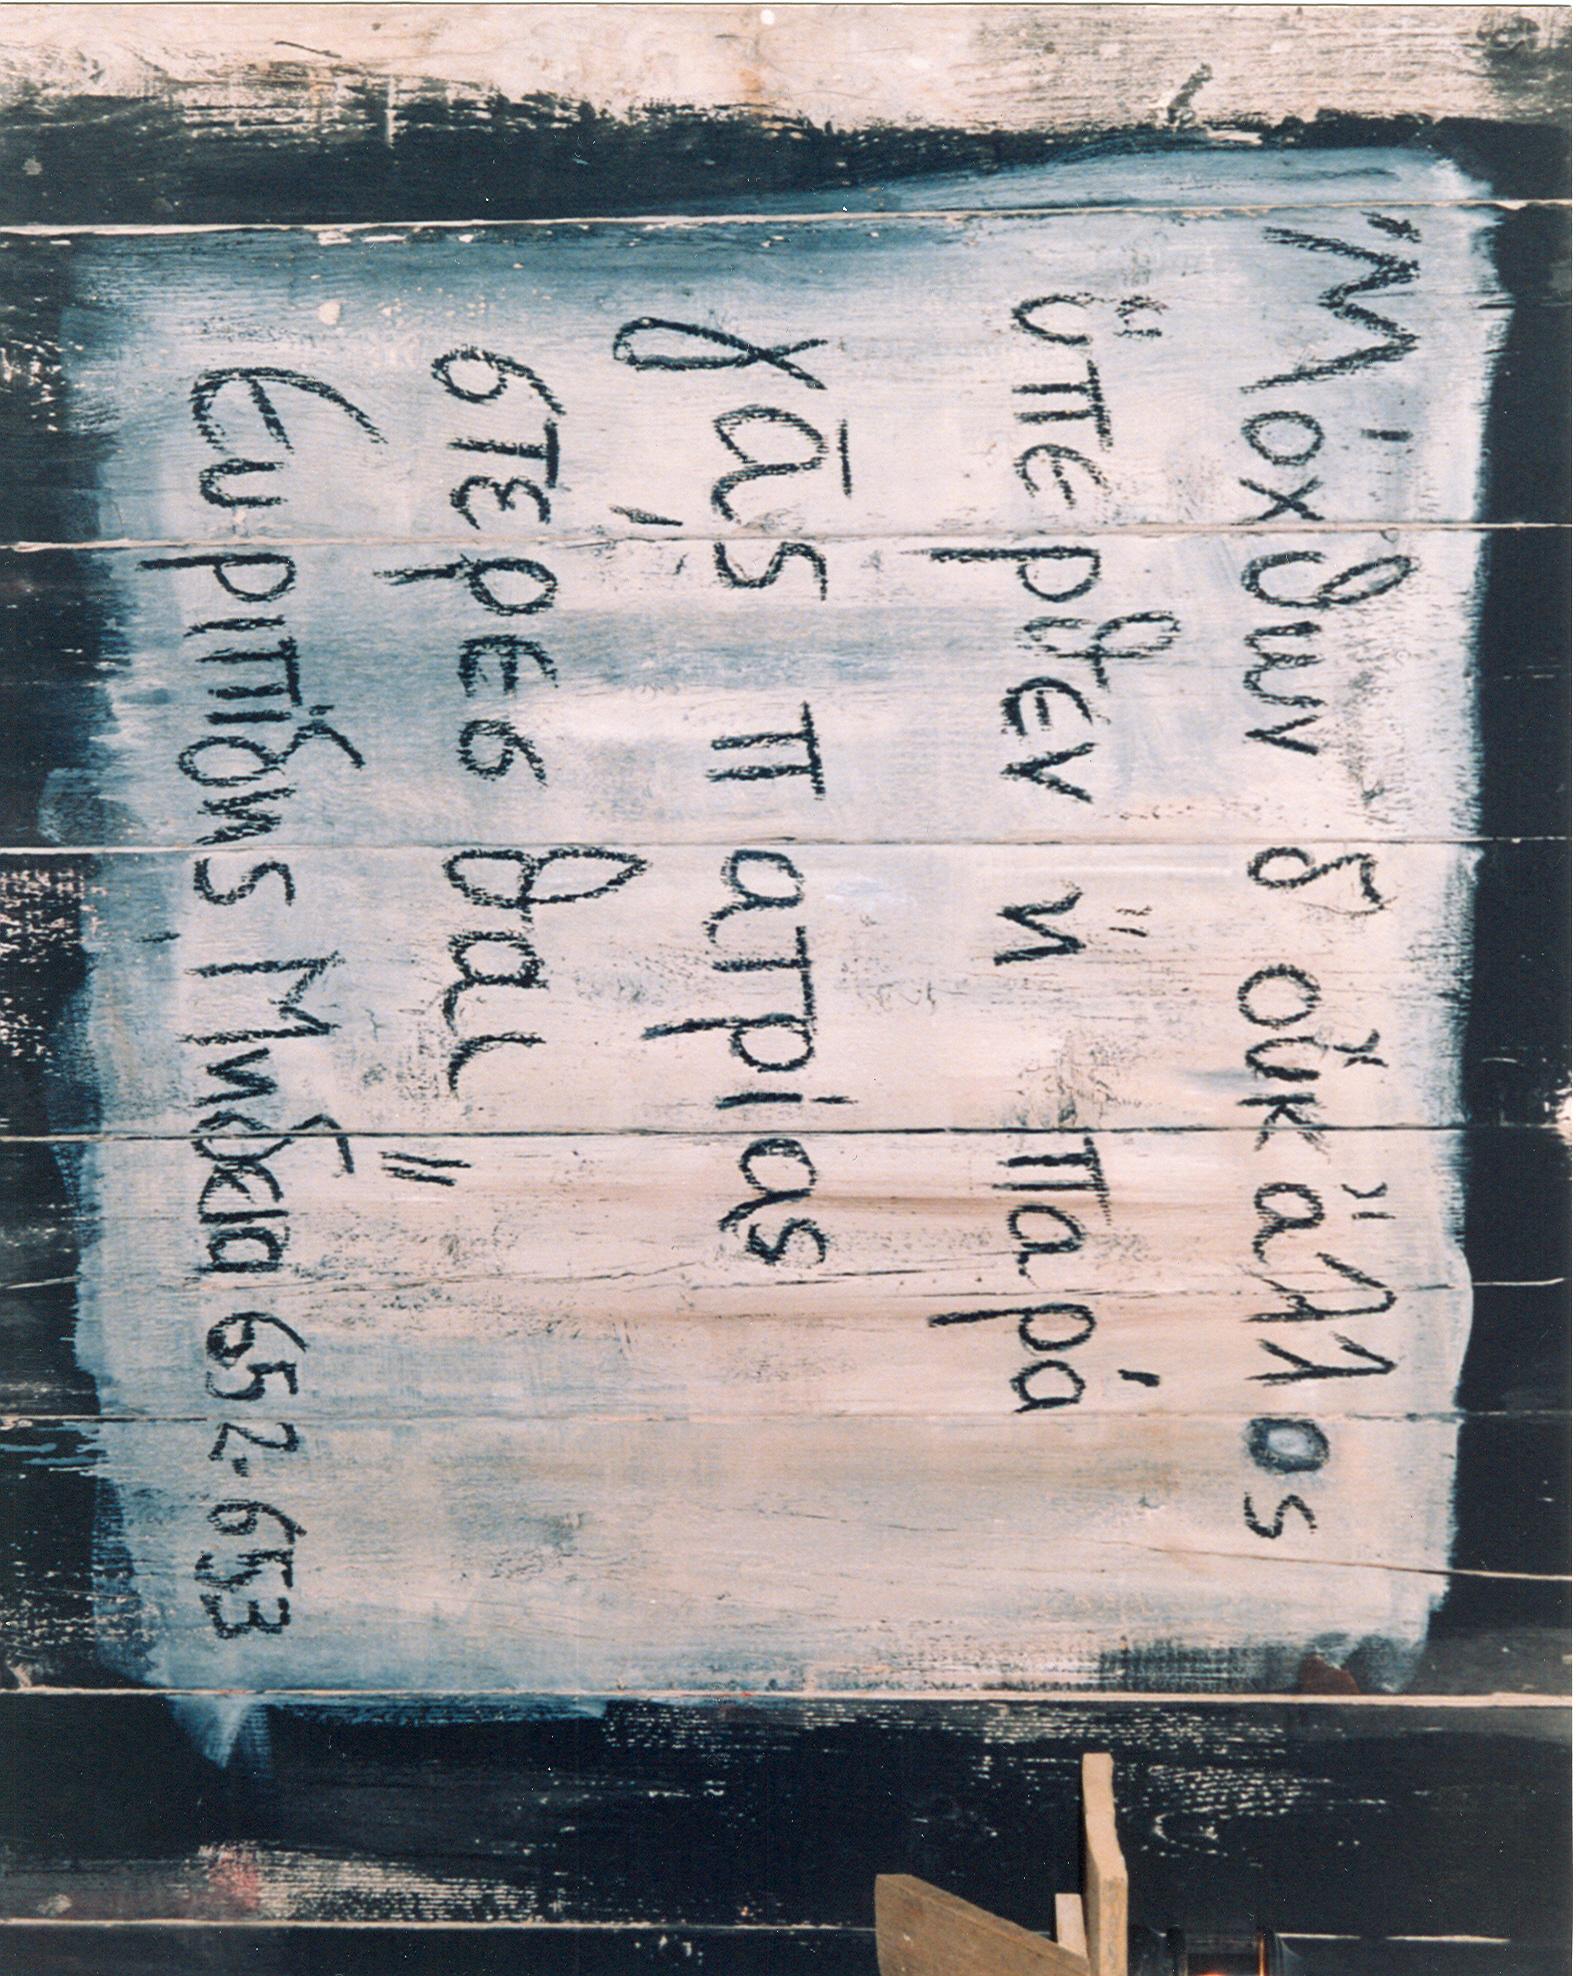 "Μόχθων δ οὐκ ἄλλος
ὕπερθεν ἢ παρά
γᾶς πατρίας
στέρεσθαι"
Ευριπίδης Μήδεια 652-653